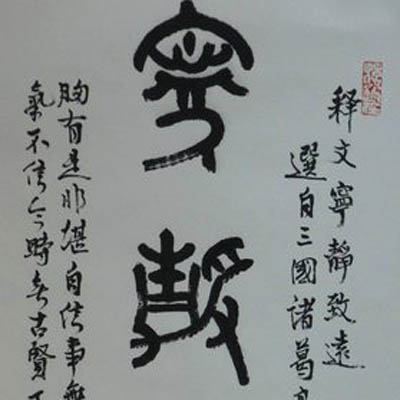 释文寧靜致遠
選自三國諸葛亮
寧靜
胸有是非堪自信事無
氣不信今時無古賢